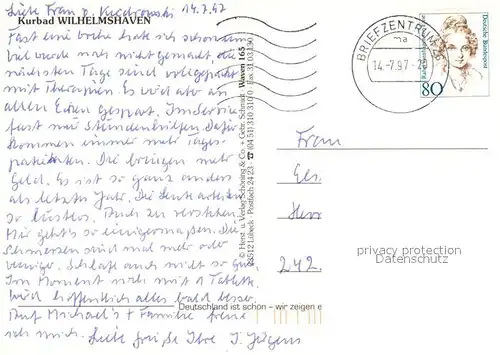 Liebe Frau v. 14.7.97
Kurbad WILHELMSHAVEN
Fast eine Woche habe ich schon um.
Viel wurde noch nicht gemacht, die
nächsten Tage sind vollgepackt
mit Therapien. Es wird aber an
allen Ecken gespart. Im Service
fast nur Stundenhilfen. Dafür
kommen immer mehr Tages-
patienten. Die bringen mehr
Geld. Es ist so ganz anders
als letztes Jahr. Die Leute arbeiten
so lustlos. Auch zu verstehen.
Mir geht's so einigermaßen. Die
Schmerzen sind mal mehr oder
weniger. Schlafe auch nicht so gut.
Im Moment noch mit 1 Tablette.
Wird hoffentlich alles bald besser.
Auf Michael's + Familie freue
ich mich. Liebe Grüße Ihre J. Jürgens
© Horst. u. Verlag Schöning & Co. + Gebr. Schmidt
23512 Lübeck · Postfach 24 23 · ☎ (04 51) 3 10 31 0 · Fax 31 03 50
Waven 165
Deutschland ist schön – wir zeigen e
BRIEFZENTRUM 26
ma
14.-7.97
Deutsche Bundespost
80
Frau
Herr
242
privacy protection
Datenschutz